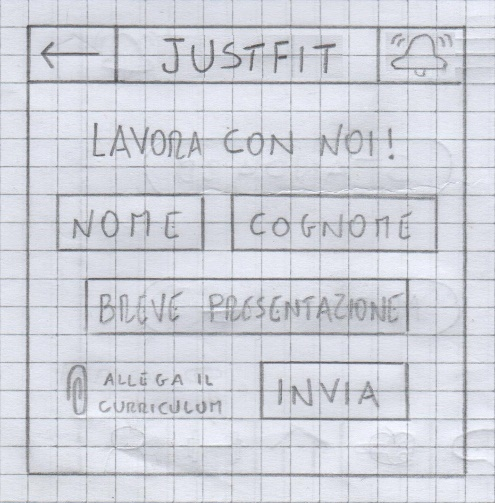 JUSTFIT
LAVORA CON NOI!
NOME COGNOME
BREVE PRESENTAZIONE
ALLEGA IL
CURRICULUM
INVIA